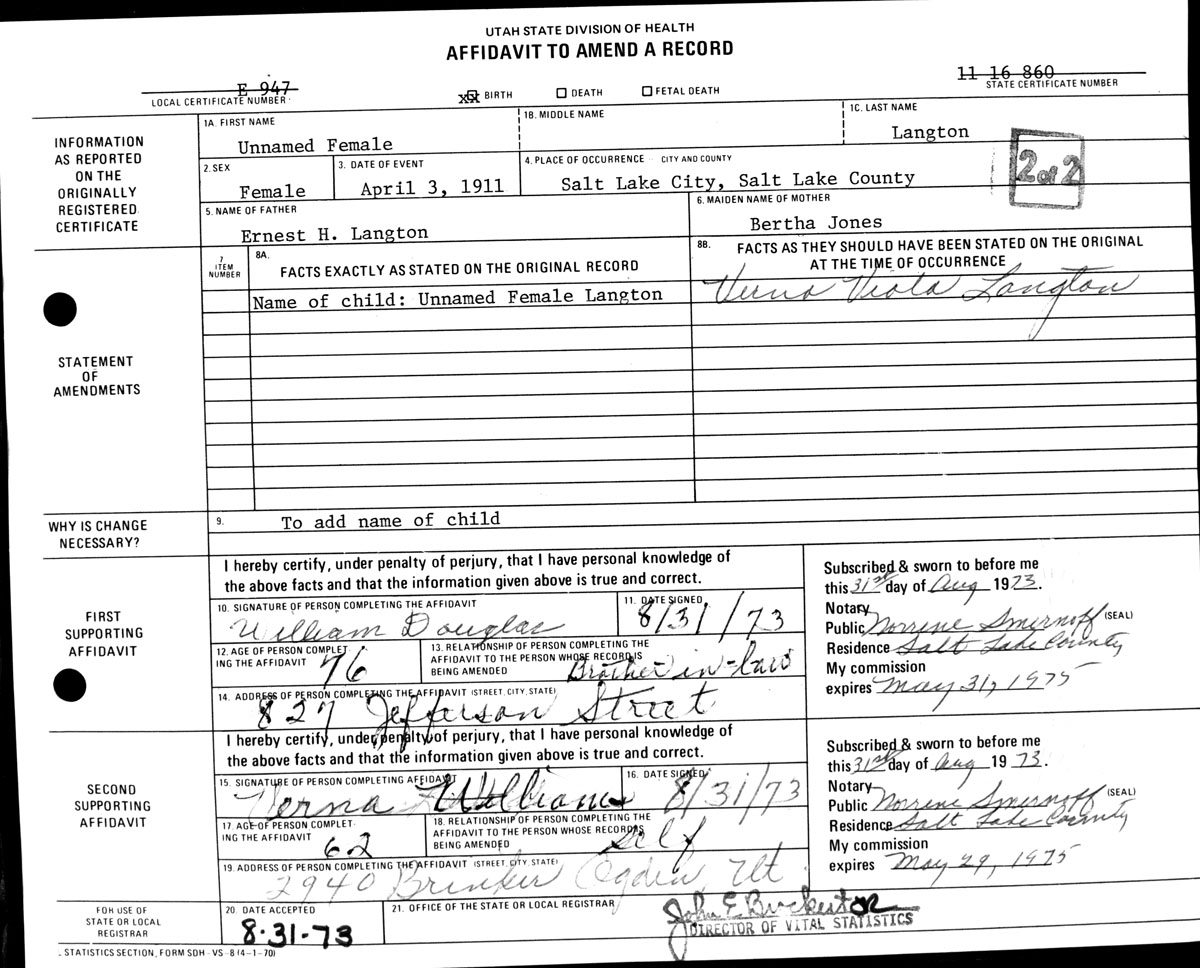 UTAH STATE DIVISION OF HEALTH
AFFIDAVIT TO AMEND A RECORD
E 947
LOCAL CERTIFICATE NUMBER
xx BIRTH
DEATH
FETAL DEATH
11 16 860
STATE CERTIFICATE NUMBER
INFORMATION AS REPORTED ON THE ORIGINALLY REGISTERED CERTIFICATE
1A. FIRST NAME
Unnamed Female
1B. MIDDLE NAME
1C. LAST NAME
Langton
2 of 2
2. SEX
Female
3. DATE OF EVENT
April 3, 1911
4. PLACE OF OCCURRENCE CITY AND COUNTY
Salt Lake City, Salt Lake County
5. NAME OF FATHER
Ernest H. Langton
6. MAIDEN NAME OF MOTHER
Bertha Jones
STATEMENT OF AMENDMENTS
7 ITEM NUMBER
8A. FACTS EXACTLY AS STATED ON THE ORIGINAL RECORD
8B. FACTS AS THEY SHOULD HAVE BEEN STATED ON THE ORIGINAL
AT THE TIME OF OCCURRENCE
Name of child: Unnamed Female Langton
Verna Viola Langton
WHY IS CHANGE NECESSARY?
9. To add name of child
FIRST SUPPORTING AFFIDAVIT
I hereby certify, under penalty of perjury, that I have personal knowledge of
the above facts and that the information given above is true and correct.
10. SIGNATURE OF PERSON COMPLETING THE AFFIDAVIT
William Douglas
11. DATE SIGNED
8/31/73
12. AGE OF PERSON COMPLET
ING THE AFFIDAVIT 76
13. RELATIONSHIP OF PERSON COMPLETING THE
AFFIDAVIT TO THE PERSON WHOSE RECORD IS
BEING AMENDED Brother-in-law
14. ADDRESS OF PERSON COMPLETING THE AFFIDAVIT (STREET, CITY, STATE)
827 Jefferson Street
Subscribed & sworn to before me
this 31st day of Aug 1973.
Notary
Public Norrene Smernoff (SEAL)
Residence Salt Lake County
My commission
expires May 31, 1975
SECOND SUPPORTING AFFIDAVIT
I hereby certify, under penalty of perjury, that I have personal knowledge of
the above facts and that the information given above is true and correct.
15. SIGNATURE OF PERSON COMPLETING AFFIDAVIT
Verna L Williams
16. DATE SIGNED
8/31/73
17. AGE OF PERSON COMPLET-
ING THE AFFIDAVIT 62
18. RELATIONSHIP OF PERSON COMPLETING THE
AFFIDAVIT TO THE PERSON WHOSE RECORD IS
BEING AMENDED Self
19. ADDRESS OF PERSON COMPLETING THE AFFIDAVIT (STREET, CITY, STATE)
2940 Brinker Ogden, Ut
Subscribed & sworn to before me
this 31st day of Aug 1973.
Notary
Public Norrene Smernoff (SEAL)
Residence Salt Lake County
My commission
expires May 29, 1975
FOR USE OF STATE OR LOCAL REGISTRAR
20. DATE ACCEPTED
8-31-73
21. OFFICE OF THE STATE OR LOCAL REGISTRAR
John E Brockert
DIRECTOR OF VITAL STATISTICS
STATISTICS SECTION, FORM SDH-VS-8 (4-1-70)